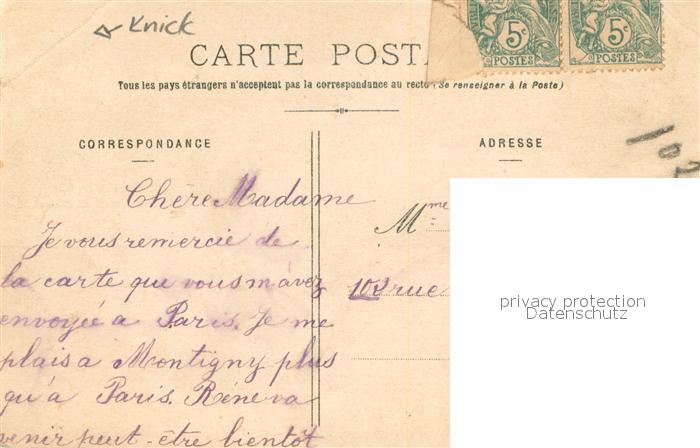 Knick
CARTE POSTA
5c 5c
POSTES POSTES
Tous les pays étrangers n'acceptent pas la correspondance au recto (Se renseigner à la Poste)
CORRESPONDANCE
ADRESSE
102
Chère Madame
Je vous remercie de
la carte que vous m'avez
envoyée à Paris. Je me
plais a Montigny plus
qu'à Paris. Réné va
venir peut-être bientôt
Mme
102 rue
privacy protection
Datenschutz